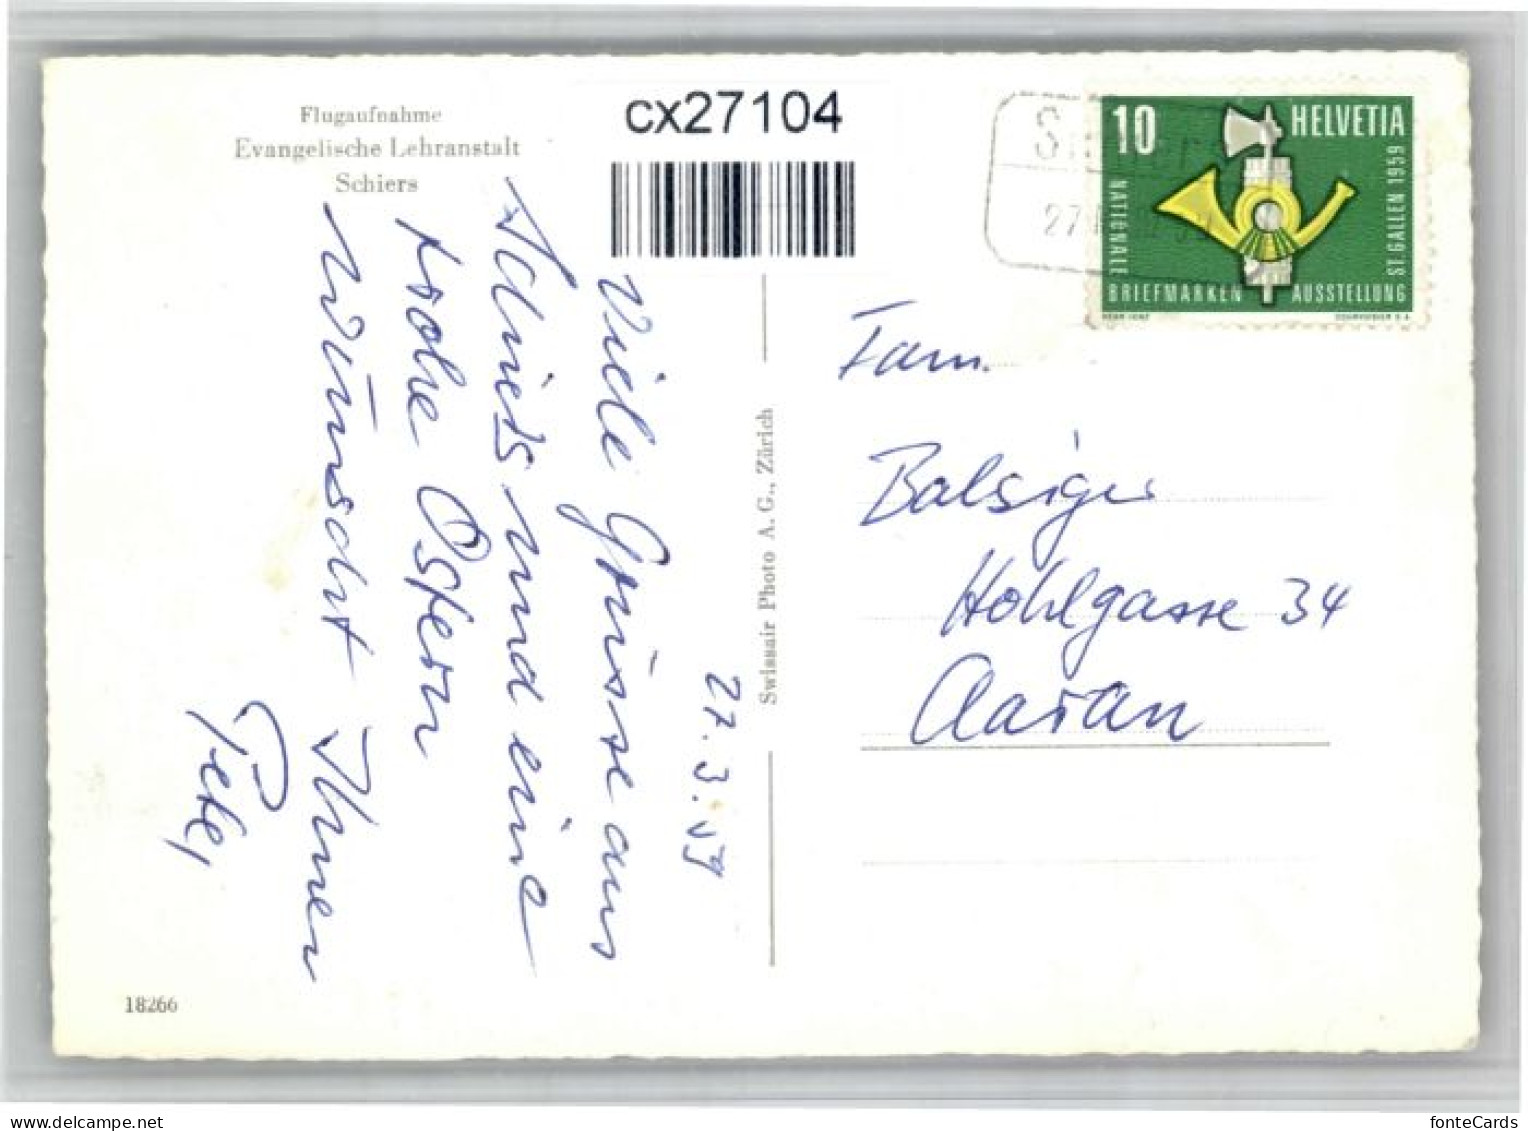 Flugaufnahme
Evangelische Lehranstalt
Schiers
cx27104
10
HELVETIA
NATIONALE
BRIEFMARKEN
AUSSTELLUNG
ST. GALLEN 1959
27.3.59
Viele Grüsse aus
Schiers und eine
frohe Ostern
wünscht Ihnen
Peter
Swissair Photo A. G., Zürich
Fam.
Balsiger
Hohlgasse 34
Aarau
18266
fonteCards
delcampe.net